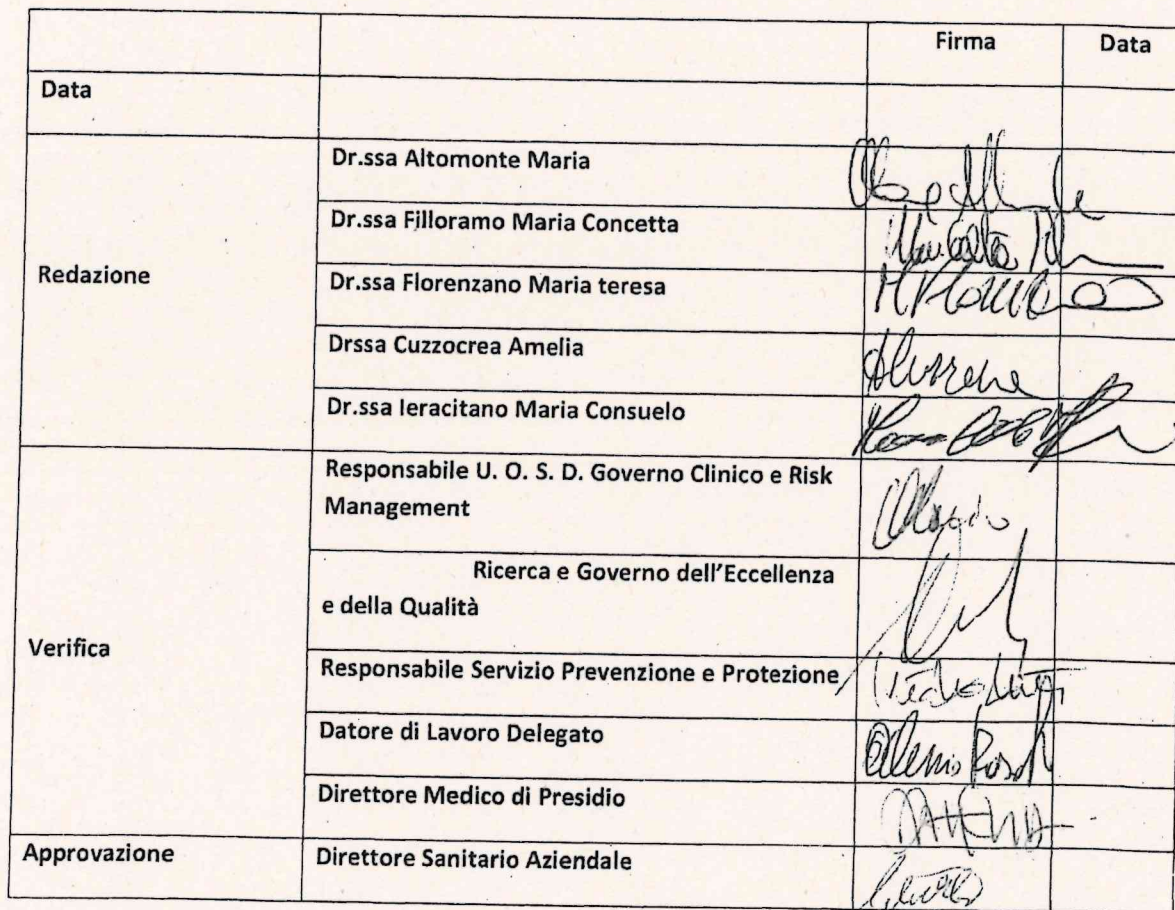 Firma Data
Data
Redazione
Dr.ssa Altomonte Maria
Dr.ssa Filloramo Maria Concetta
Dr.ssa Florenzano Maria teresa
Drssa Cuzzocrea Amelia
Dr.ssa Ieracitano Maria Consuelo
Verifica
Responsabile U. O. S. D. Governo Clinico e Risk
Management
Ricerca e Governo dell’Eccellenza
e della Qualità
Responsabile Servizio Prevenzione e Protezione
Datore di Lavoro Delegato
Direttore Medico di Presidio
Approvazione
Direttore Sanitario Aziendale